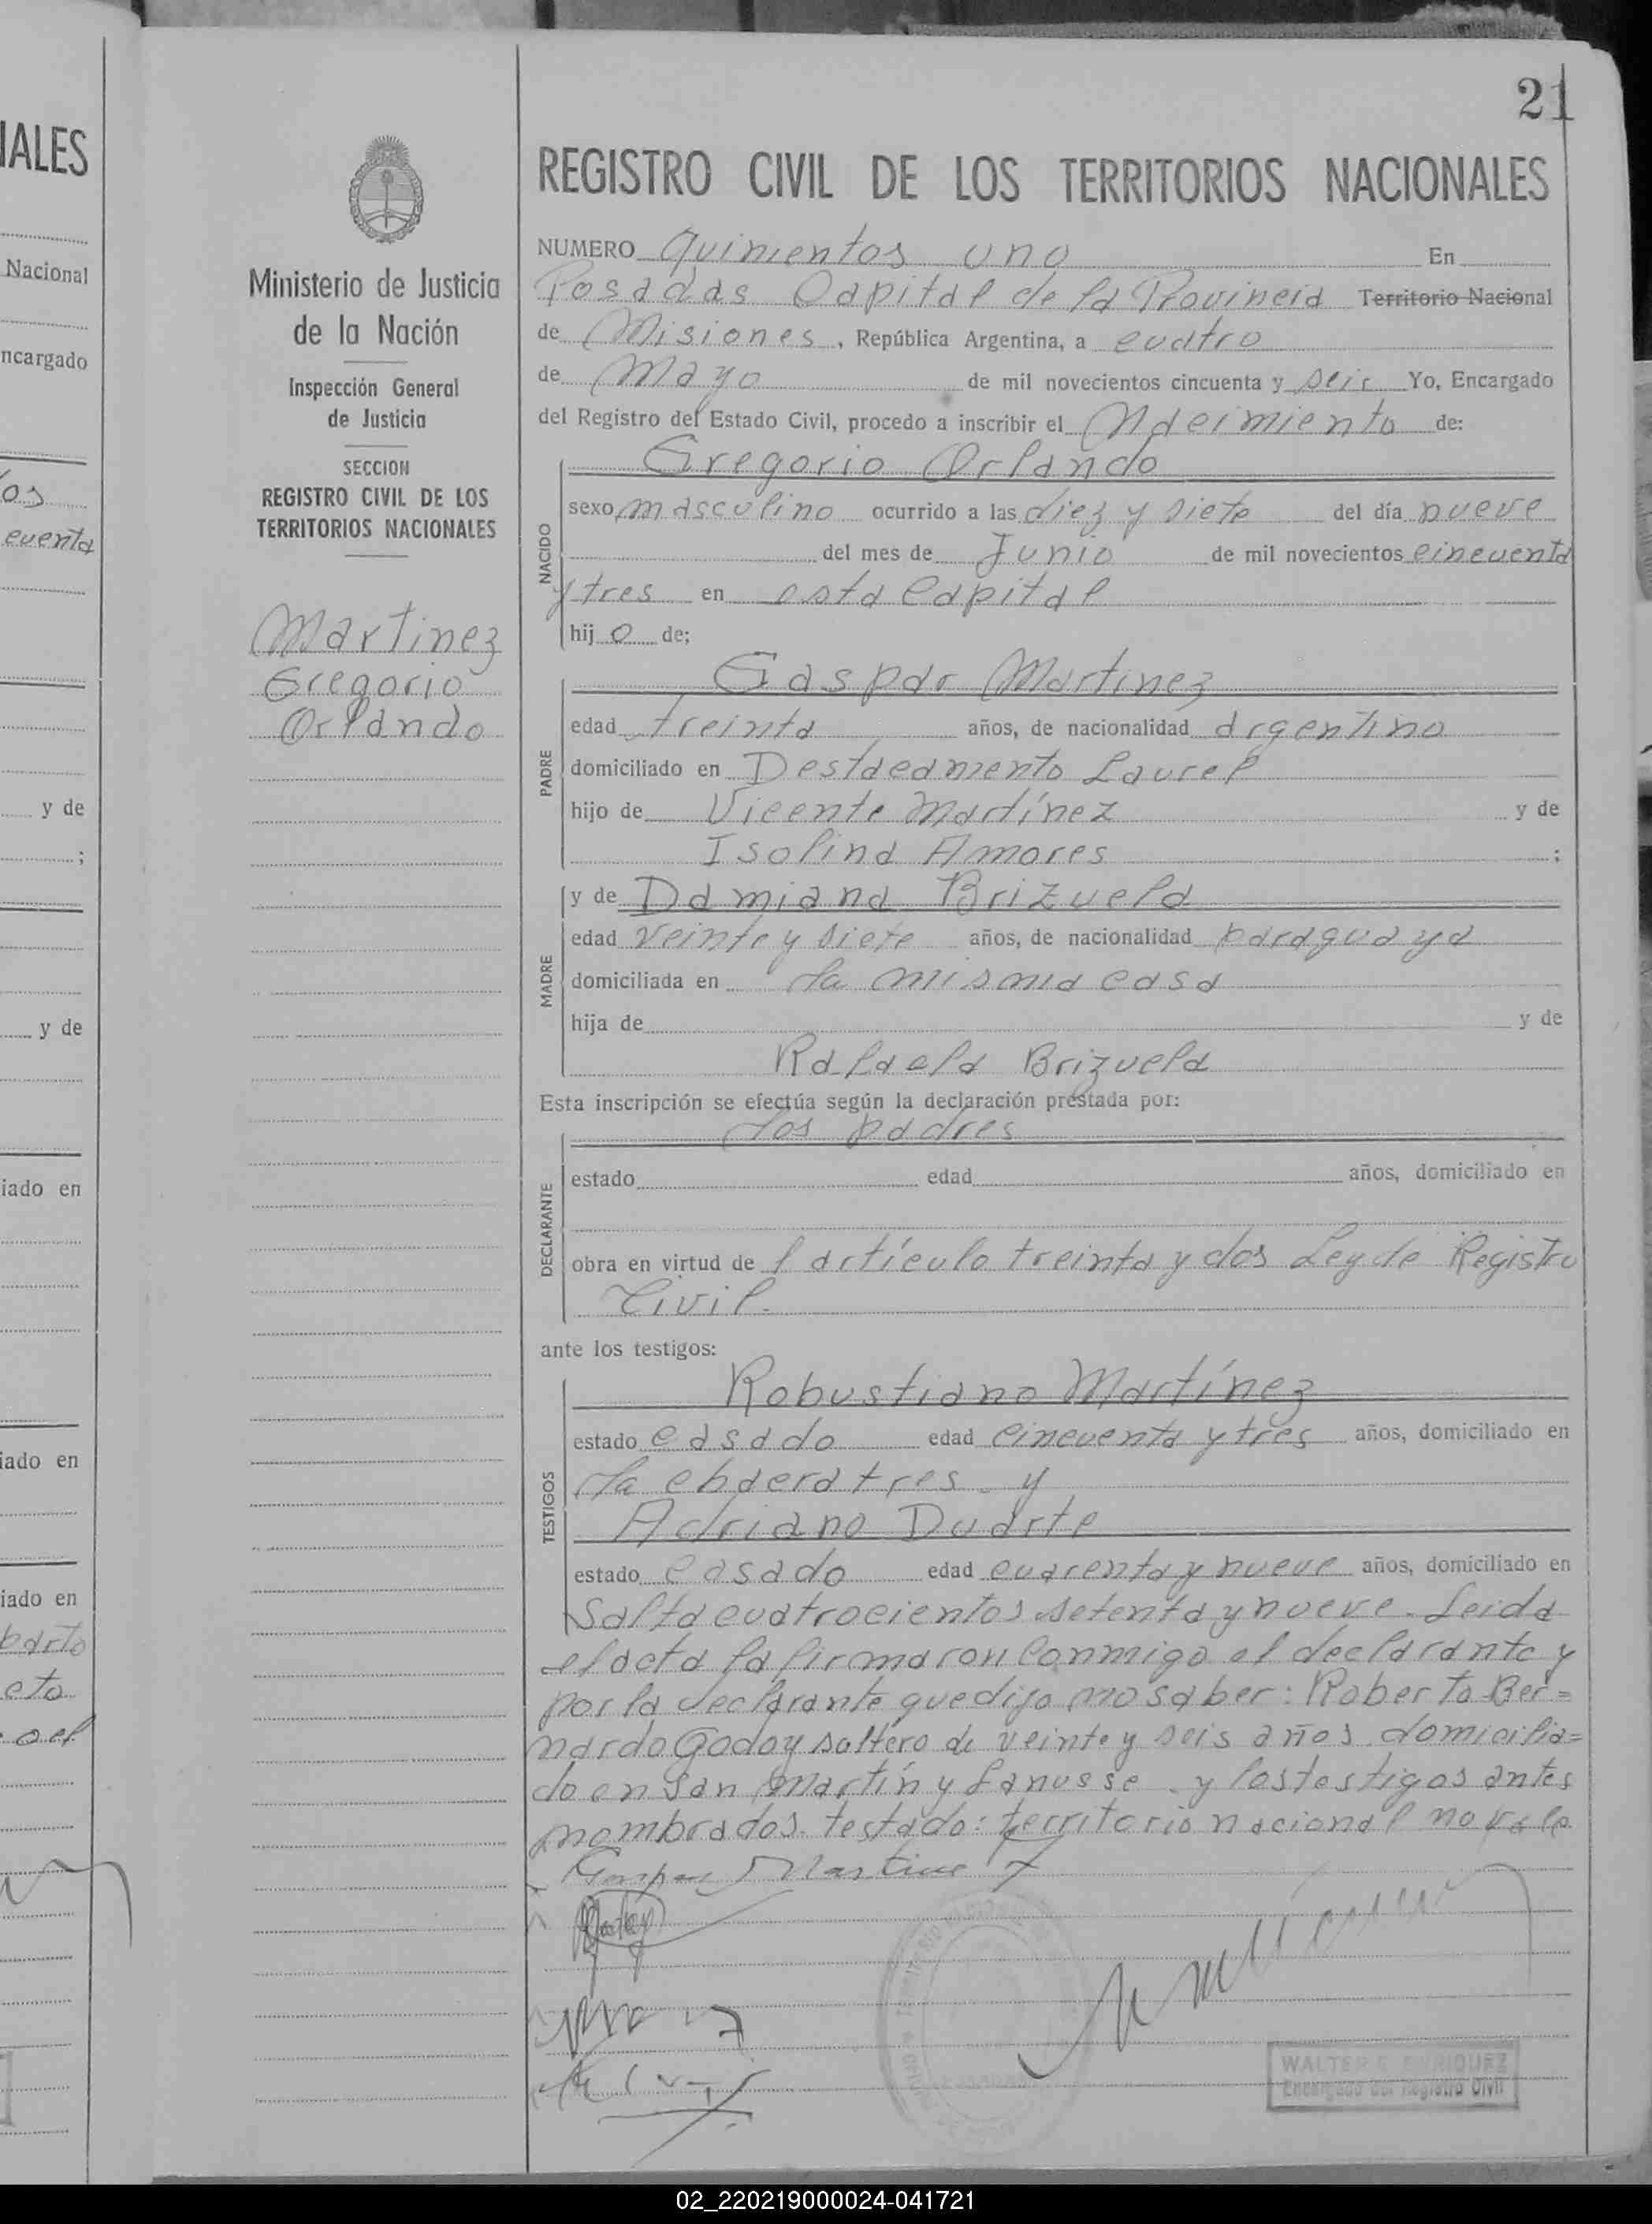 IALES
Nacional
ncargado
os
cuenta
y de
;
y de
iado en
iado en
iado en
barto
eto
oel
21
Ministerio de Justicia
de la Nación
Inspección General
de Justicia
SECCION
REGISTRO CIVIL DE LOS
TERRITORIOS NACIONALES
Martinez
Gregorio
Orlando
REGISTRO CIVIL DE LOS TERRITORIOS NACIONALES
NUMERO Quinientos uno En
Posadas Capital de la Provincia Territorio Nacional
de Misiones, República Argentina, a cuatro
de Mayo de mil novecientos cincuenta y seis Yo, Encargado
del Registro del Estado Civil, procedo a inscribir el Nacimiento de:
Gregorio Orlando
NACIDO
sexo masculino ocurrido a las diez y siete del día nueve
del mes de Junio de mil novecientos cincuenta
y tres en esta Capital
hij o de;
Gaspar Martinez
PADRE
edad treinta años, de nacionalidad argentino
domiciliado en Destacamento Laurel
hijo de Vicente Martínez y de
Isolina Amores ;
y de Damiana Brizuela
MADRE
edad veinte y siete años, de nacionalidad paraguaya
domiciliada en la misma casa
hija de y de
Rafaela Brizuela
Esta inscripción se efectúa según la declaración prestada por:
los padres
DECLARANTE
estado edad años, domiciliado en
obra en virtud de l artículo treinta y dos Ley de Registro
Civil.
ante los testigos:
Robustiano Martínez
TESTIGOS
estado casado edad cincuenta y tres años, domiciliado en
la chacra tres. y
Adriano Duarte
estado casado edad cuarenta y nueve años, domiciliado en
Salta cuatrocientos setenta y nueve. Leida
el acta la firmaron conmigo el declarante y
por la declarante que dijo no saber: Roberto Ber=
nardo Godoy soltero de veinte y seis años domicilia=
do en San Martín y Lanusse y los testigos antes
nombrados. testado: territorio nacional no vale
Gaspar Martinez
WALTER ENRIQUEZ
Encargado del Registro Civil
02_220219000024-041721